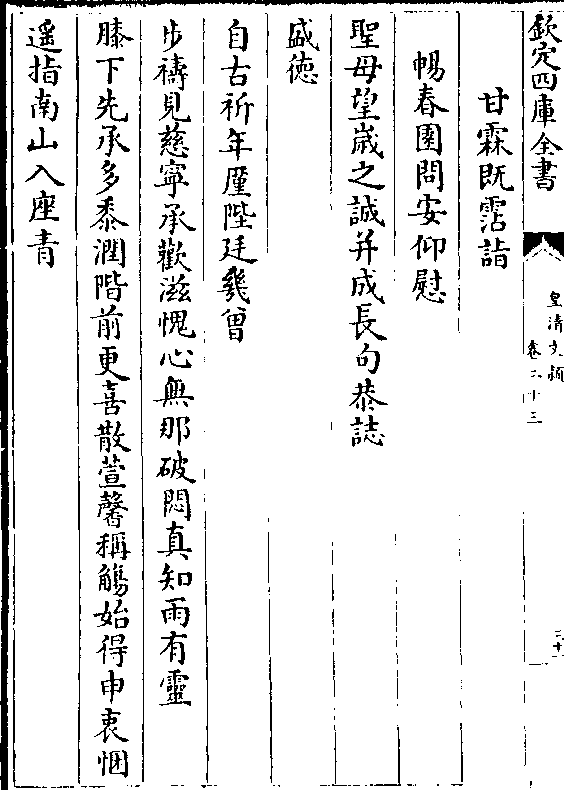 欽定四庫全書
皇清文頴
卷二十三
三十
甘霖既霑詣
暢春園問安仰慰
聖母望嵗之誠并成長句恭誌
盛徳
自古祈年厪陛廷㡬曽
步禱見慈寧承歡滋愧心無那破悶真知雨有靈
膝下先承多黍潤階前更喜散萱馨稱觴始得申衷悃
遥指南山入座青